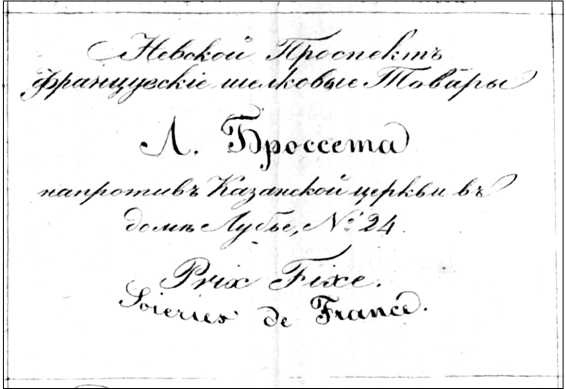 Невской Проспектъ
французскіе шелковые Товары
Л. Броссета
напротивъ Казанской церкви въ
домѣ Лубье, № 24.
Prix Fixe.
Soieries de France.